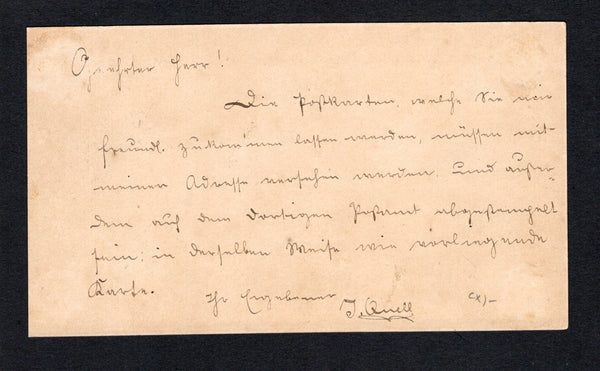 Geehrter Herr!
Die Postkarten, welche Sie mir
freundl. zukommen lassen werden, müssen mit
meiner Adresse versehen werden. Und außer-
dem auf dem dortigen Postamt abgestempelt
sein; in derselben Weise wie vorliegende
Karte.
Ihr Ergebener J. Quell